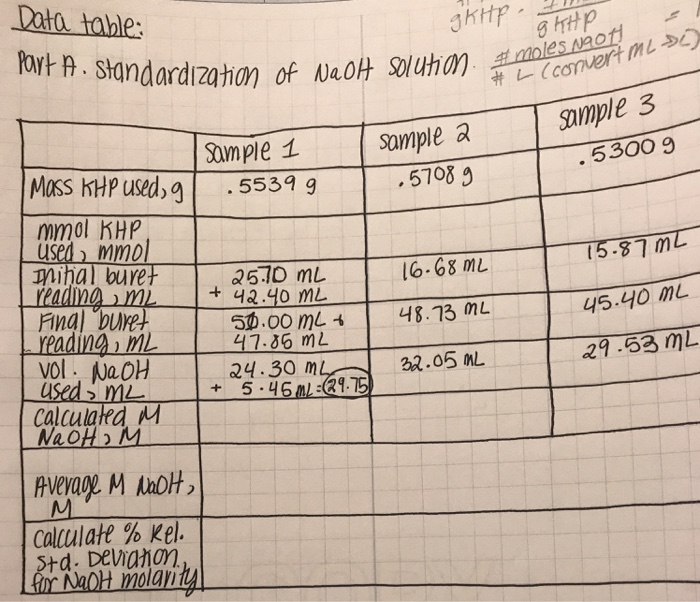 Data table:
gKHP .
gKHP
=
Part A. Standardization of NaOH solution.
# moles NaOH
# L (convert mL → L)
Sample 1
Sample 2
Sample 3
Mass KHP used, g
.5539 g
.5708 g
.5300 g
mmol KHP
used, mmol
Initial buret
reading, mL
25.70 mL
+ 42.40 mL
16.68 mL
15.87 mL
Final buret
reading, mL
50.00 mL +
47.85 mL
48.73 mL
45.40 mL
Vol. NaOH
used, mL
24.30 mL
+ 5.45 mL = 29.75
32.05 mL
29.53 mL
Calculated M
NaOH, M
Average M NaOH,
M
Calculate % Rel.
Std. Deviation
for NaOH molarity